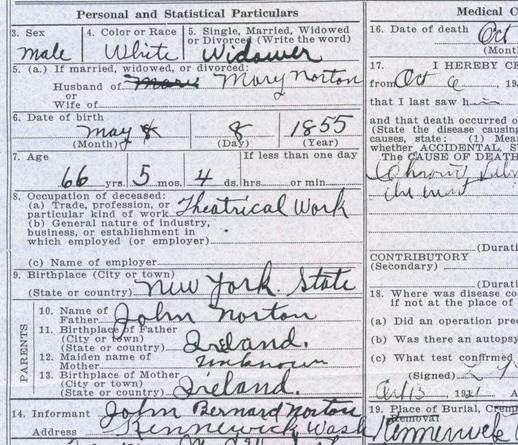 Personal and Statistical Particulars
3. Sex
male
4. Color or Race
White
5. Single, Married, Widowed
or Divorced (Write the word)
Widower
5. (a.) If married, widowed, or divorced:
Husband of Mary Norton
or
Wife of
6. Date of birth
May 8 1855
(Month) (Day) (Year)
7. Age
If less than one day
66 yrs. 5 mos. 4 ds. hrs. or min.
8. Occupation of deceased:
(a) Trade, profession, or
particular kind of work Theatrical Work
(b) General nature of industry,
business, or establishment in
which employed (or employer)
(c) Name of employer
9. Birthplace (City or town)
(State or country) New York State
PARENTS
10. Name of
Father John Norton
11. Birthplace of Father
(City or town)
(State or country) Ireland.
12. Maiden name of
Mother unknown
13. Birthplace of Mother
(City or town)
(State or country) Ireland.
14. John Bernard Norton
Informant Kennewick Wash
Medical C
16. Date of death Oct
(Mont
17. I HEREBY CE
from Oct 6, 19
that I last saw him
and that death occurred o
(State the disease causing
causes, state: (1) Mea
whether ACCIDENTAL, S
The CAUSE OF DEATH
Chronic
(Durati
CONTRIBUTORY
(Secondary)
(Durati
18. Where was disease co
if not at the place of
(a) Did an operation prec
(b) Was there an autopsy
(c) What test confirmed
(Signed)
Oct 13 1921 A
19. Place of Burial, Crem
Removal
Kennewick